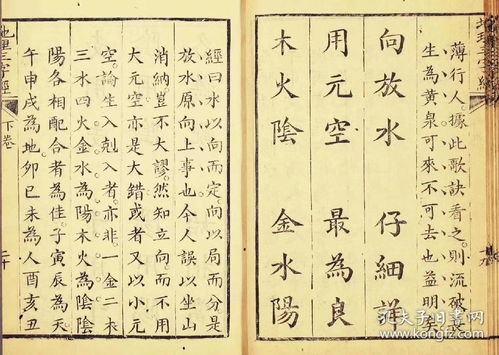 薄行人據此歌訣看之則流破長
生為黃泉可來不可去也益明矣
向放水 仔細詳
用元空 最為良
木火陰 金水陽
經曰水以向而定向以局而分是
放水原向上事也今人誤以坐山
消納豈不大謬然知立向而不用
大元空亦是大錯或者又以小元
空論生入剋入者亦非一金二木
三水四火金水為陽木火為陰陰
陽各相配合者為佳子寅辰為天
午申戌為地卯巳未為人酉亥丑
地理三字經 下卷
孔夫子旧书网
kongfz.com